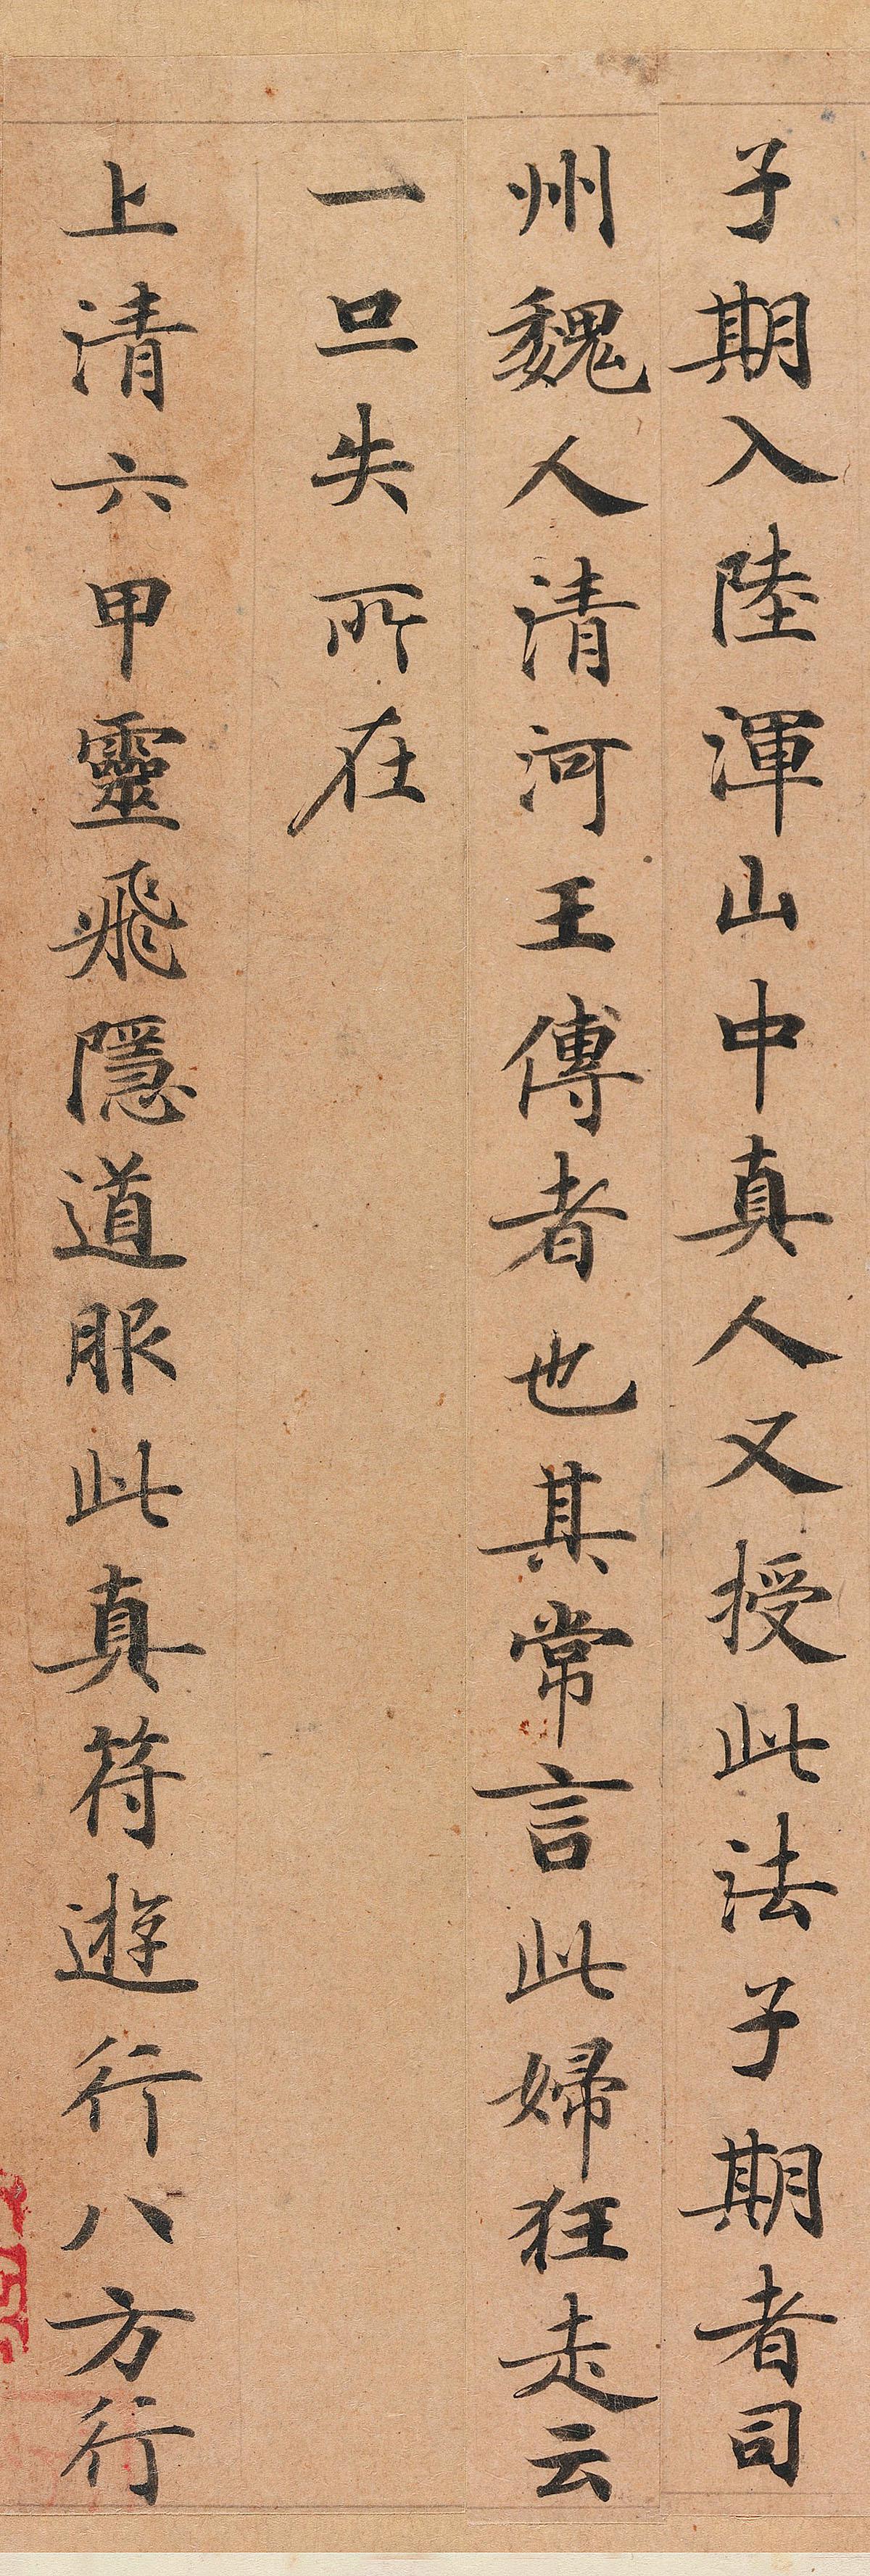 子期入陸渾山中真人又授此法子期者司
州魏人清河王傅者也其常言此婦狂走云
一旦失所在
上清六甲靈飛隱道服此真符遊行八方行